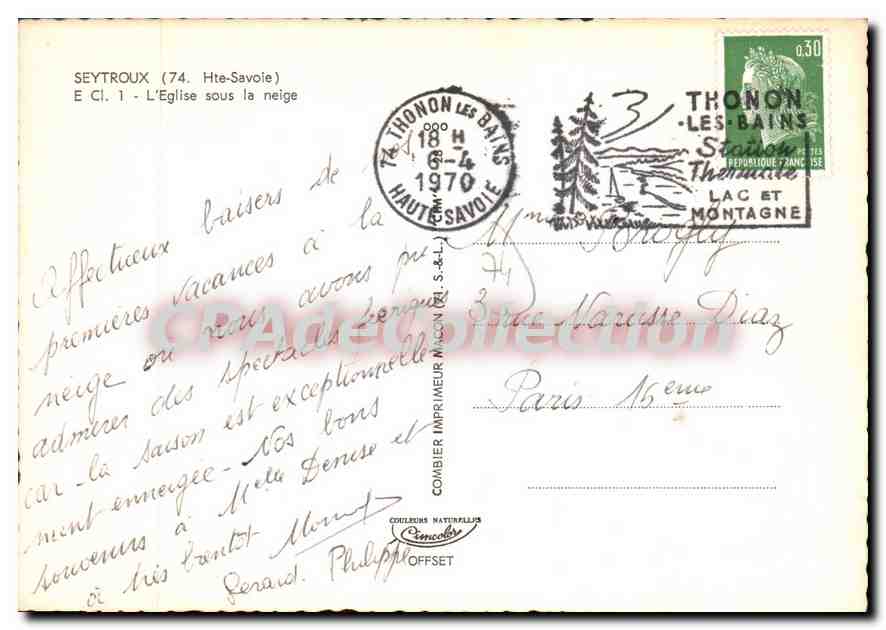 SEYTROUX (74. Hte-Savoie)
E Cl. 1 - L'Eglise sous la neige
Affectueux baisers de
premières vacances à la
neige où nous avons pu
admirer des spectacles féeriques
car la saison est exceptionnelle-
ment enneigée - Nos bons
souvenirs à Melle Denise et
à très bientôt
Gérard. Philippe
COMBIER IMPRIMEUR MACON (71. S.-&-L.) CIM
COULEURS NATURELLES
Cimcolor
OFFSET
74 THONON LES BAINS
18 H
6-4
1970
HAUTE-SAVOIE
THONON
-LES-BAINS
Station
Thermale
LAC ET
MONTAGNE
0,30
POSTES
REPUBLIQUE FRANÇAISE
Mme
74
3 rue Narcisse Diaz
Paris 16eme
CPAdeCollection